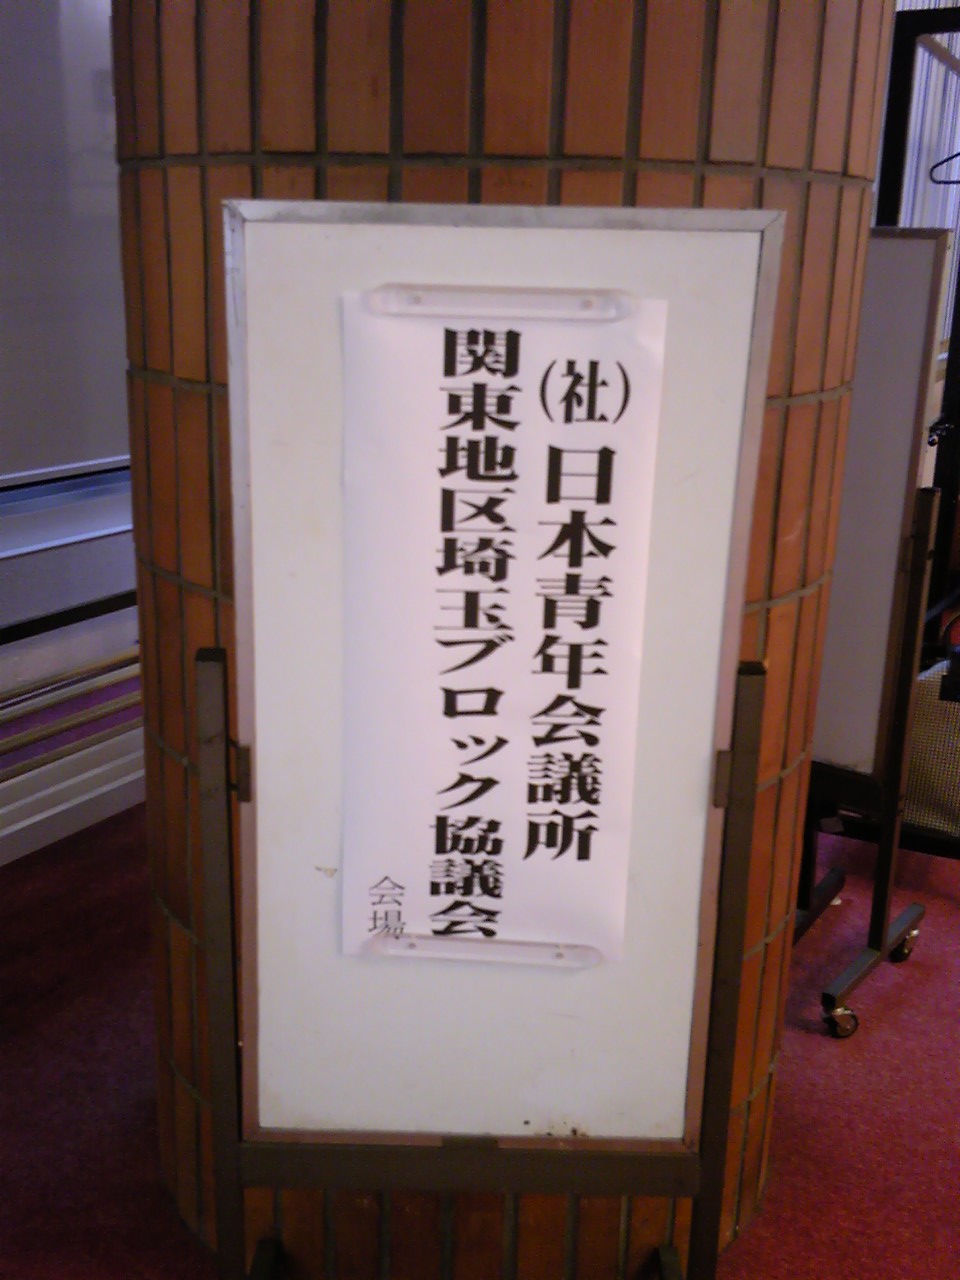 (社)日本青年会議所
関東地区埼玉ブロック協議会
会場